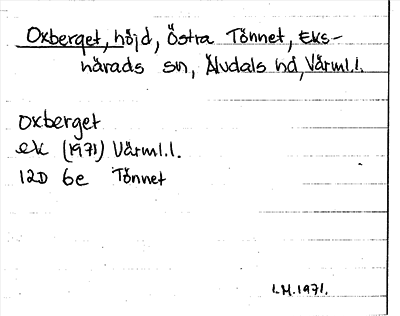 Oxberget, höjd, Östra Tönnet, Eks-
härads sn, Älvdals hd, Värml.l.
Oxberget
ek (1971) Värml.l.
12D 6e Tönnet
L.M.1971.